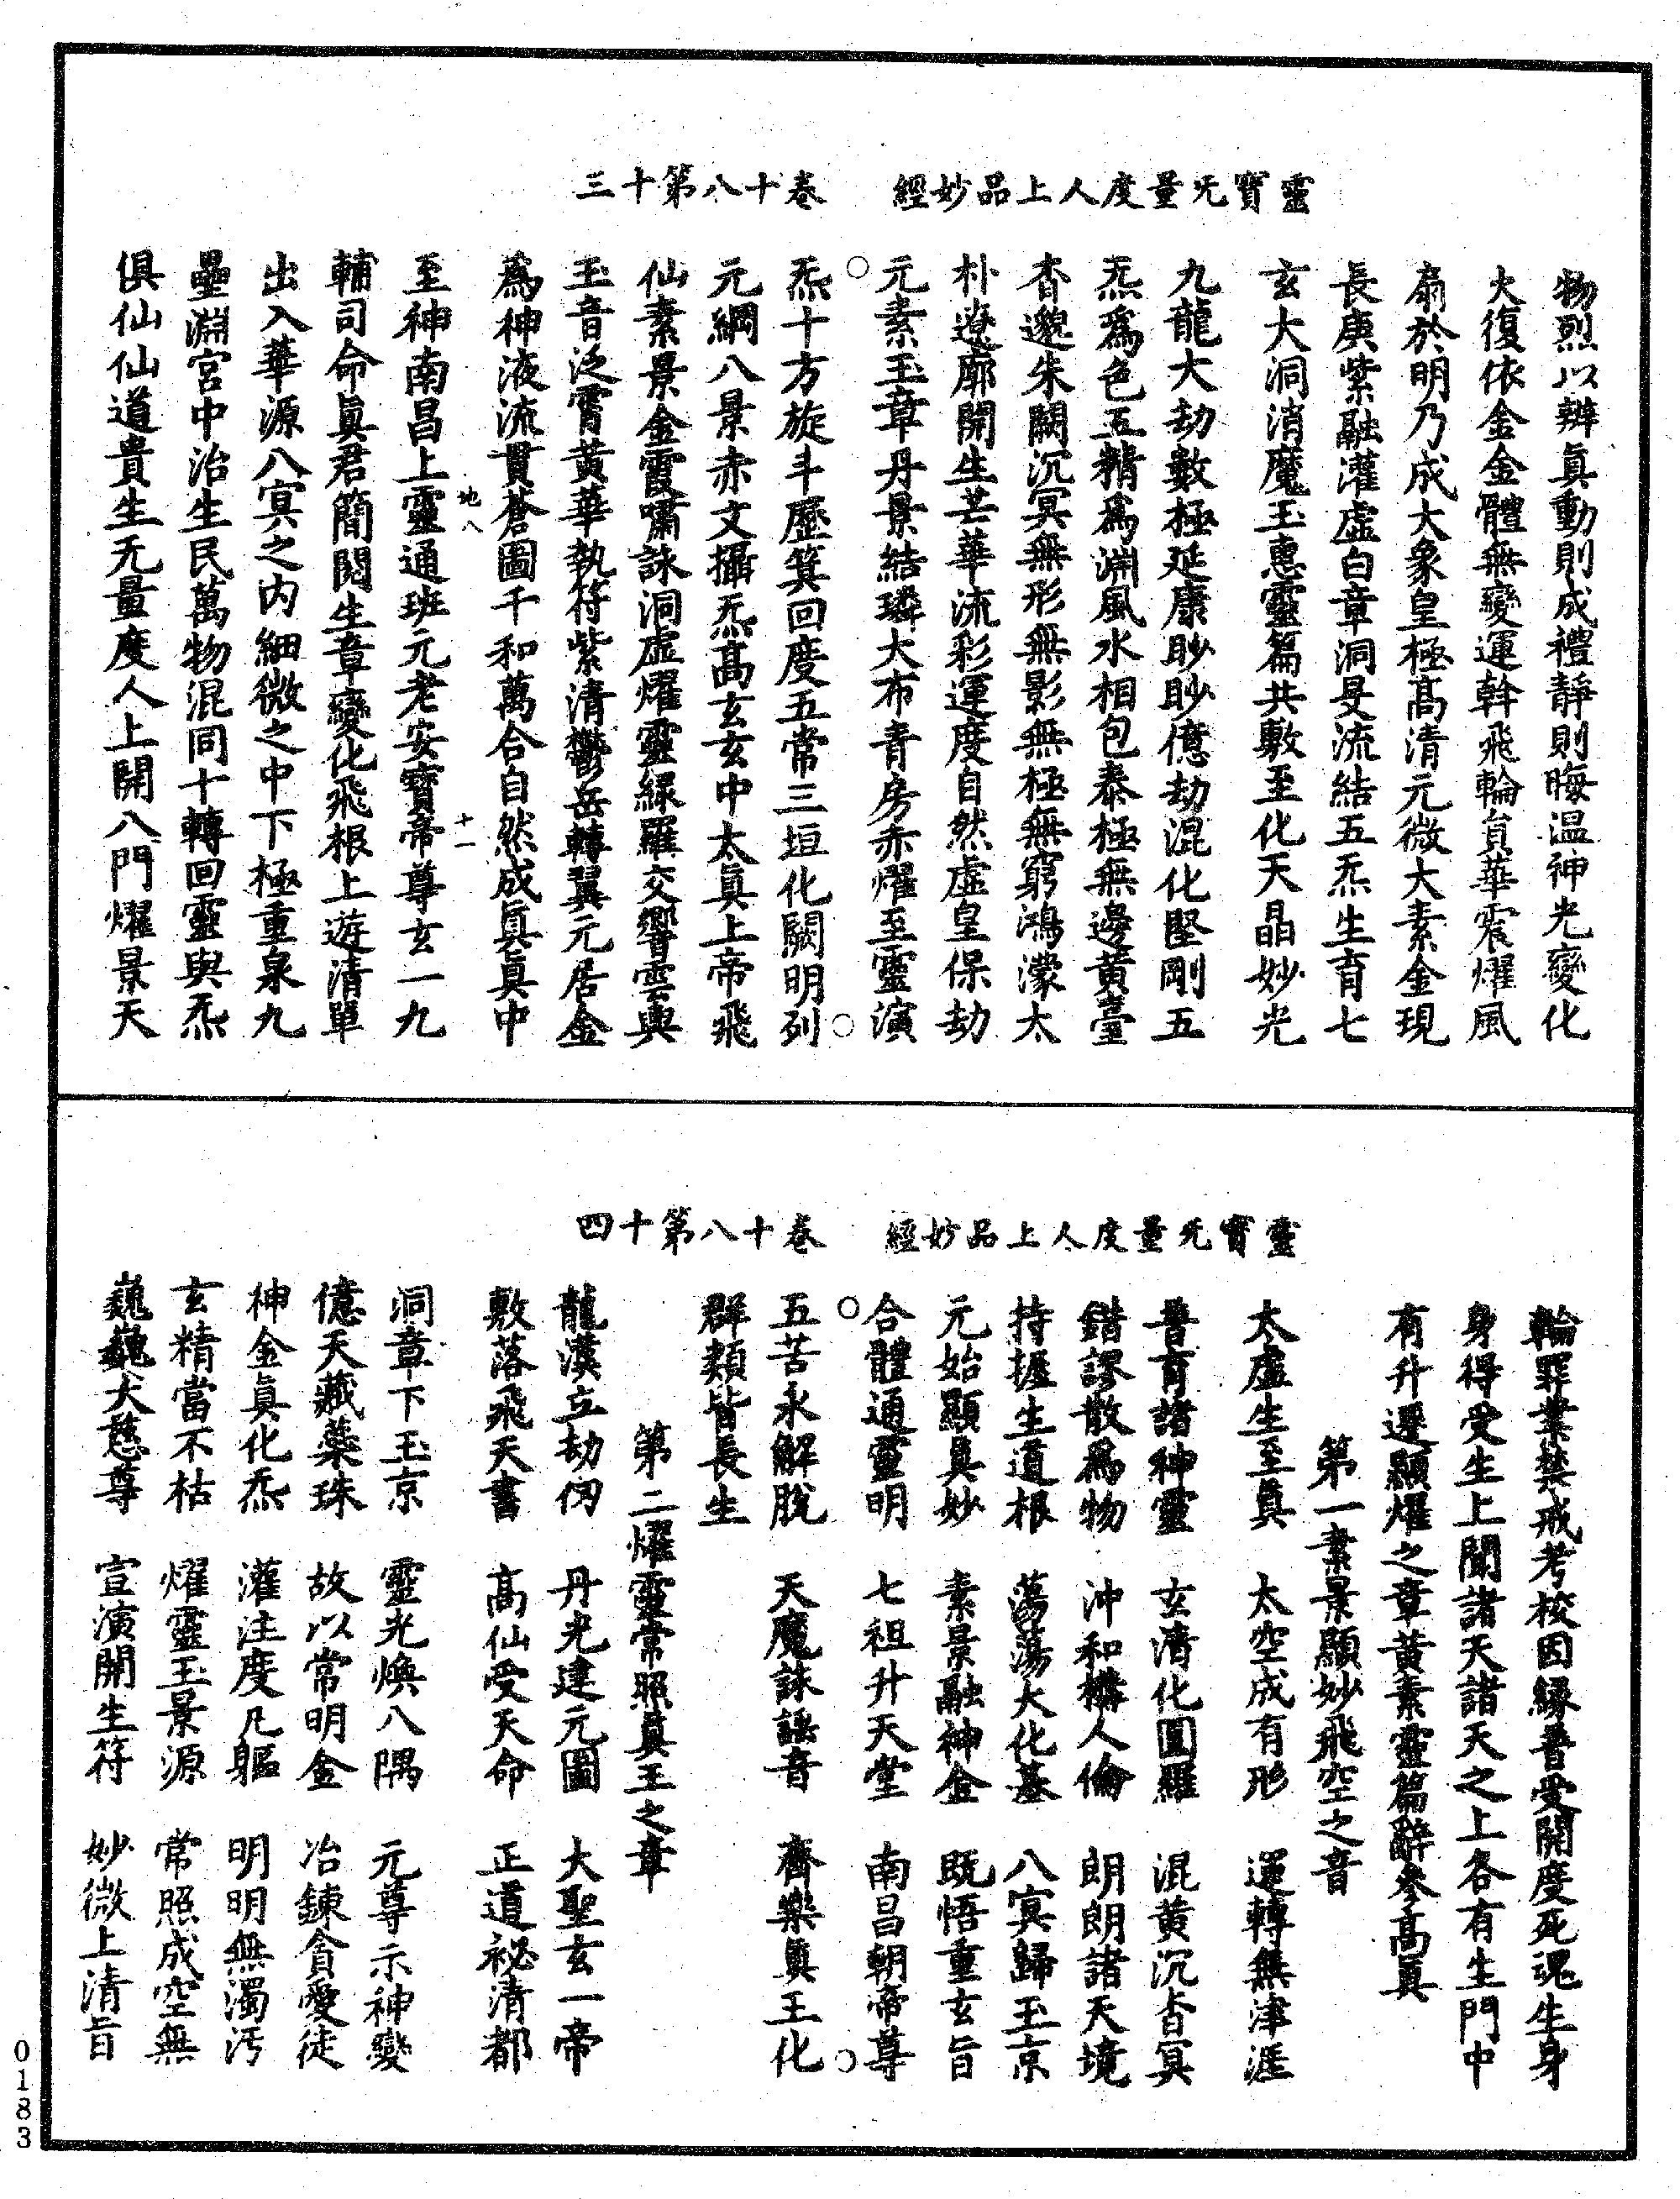 靈寶旡量度人上品妙經　卷十八第十三
物烈以辨眞動則成禮靜則晦溫神光變化
火復依金金體無變運斡飛輪貟華震燿風
扇於明乃成大象皇極髙清元微大素金現
長庚紫融灌虛白章洞旻流結五炁生育七
玄大洞消魔玉惠靈篇共敷至化天晶妙光
九龍大劫數極延康眇眇億劫混化堅剛五
炁爲色五精爲淵風水相包泰極無邊黃臺
杳邈朱闕沉冥無形無影無極無窮鴻濛太
朴遼廓開生芒華流彩運度自然虛皇保劫
元素玉章丹景結璘大布青房赤燿至靈演
炁十方旋斗歷箕回度五常三垣化闕明列
元綱八景赤文攝炁髙玄玄中太眞上帝飛
仙素景金霞嘯詠洞虛燿靈緑羅交響雲輿
玉音泛霄黃華執符紫清鬱岳轉翼元居金
爲神液流貫蒼圖千和萬合自然成眞眞中
地八　十一
至神南昌上靈通班元老安寶帝尊玄一九
輔司命眞君簡閱生章變化飛根上遊清單
出入華源八冥之内細微之中下極重泉九
壘淵宮中治生民萬物混同十轉回靈與炁
俱仙仙道貴生旡量度人上開八門燿景天
靈寶旡量度人上品妙經　卷十八第十四
輪罪業禁戒考校因縁普受開度死魂生身
身得受生上聞諸天諸天之上各有生門中
有升遷顯燿之章黃素靈篇辭參髙眞
第一素景顯妙飛空之音
太虛生至眞　太空成有形　運轉無津涯
普育諸神靈　玄濟化圓羅　混黃沉杳冥
錯謬散爲物　沖和構人倫　朗朗諸天境
持握生道根　蕩蕩大化基　八冥歸玉京
元始顯眞妙　素景融神金　既悟重玄旨
合體通靈明　七祖升天堂　南昌朝帝尊
五苦永解脫　天魔誅謡音　齊樂眞王化
群類皆長生
第二燿靈常照眞王之章
龍漢立劫仞　丹光建元圖　大聖玄一帝
敷落飛天書　髙仙受天命　正道祕清都
洞章下玉京　靈光煥八隅　元尊示神變
億天藏藥珠　故以常明金　冶鍊貪愛徒
神金眞化炁　灌注度凡軀　明明無濁汚
玄精當不枯　燿靈玉景源　常照成空無
巍巍大慈尊　宣演開生符　妙微上清旨
0183